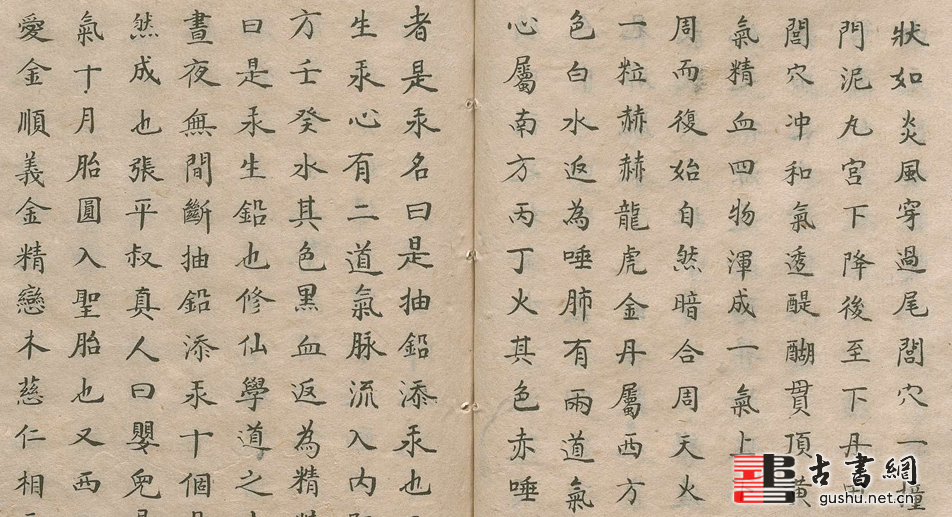 狀如炎風穿過尾閭穴一撞
門泥丸宮下降後至下丹田
閭穴冲和氣透醍醐貫頂黃
氣精血四物渾成一氣上
周而復始自然暗合周天火
一粒赫赫龍虎金丹屬西方
色白水返為唾肺有兩道氣
心屬南方丙丁火其色赤唾
者是汞名曰是抽鉛添汞也
生汞心有二道氣脉流入内
方壬癸水其色黑血返為精
曰是汞生鉛也修仙學道之
晝夜無間斷抽鉛添汞十個
然成也張平叔真人曰嬰兒
氣十月胎圓入聖胎也又西
愛金順義金精戀木慈仁相
古書網
gushu.net.cn